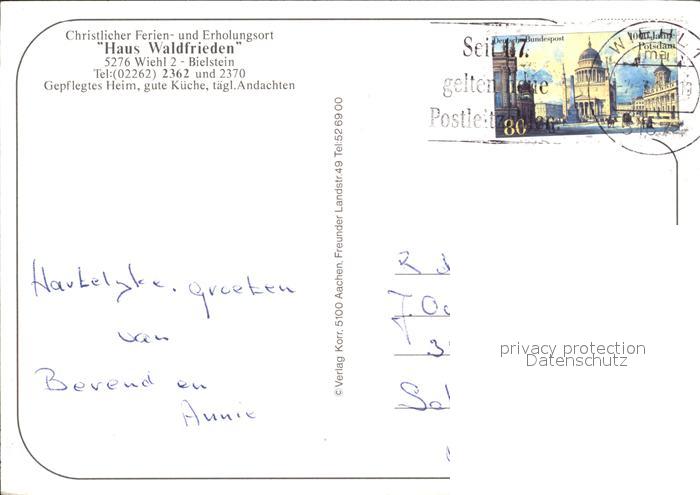 Christlicher Ferien- und Erholungsort
"Haus Waldfrieden"
5276 Wiehl 2 - Bielstein
Tel:(02262) 2362 und 2370
Gepflegtes Heim, gute Küche, tägl.Andachten
Deutsche Bundespost
1000 Jahre
Potsdam
80
Seit 1.7.
gelten neue
Postleitzahlen
© Verlag Korr. 5100 Aachen, Freunder Landstr.49 Tel:52 69 00
Hartelyke. groeten
van
Berend en
Annie
privacy protection
Datenschutz